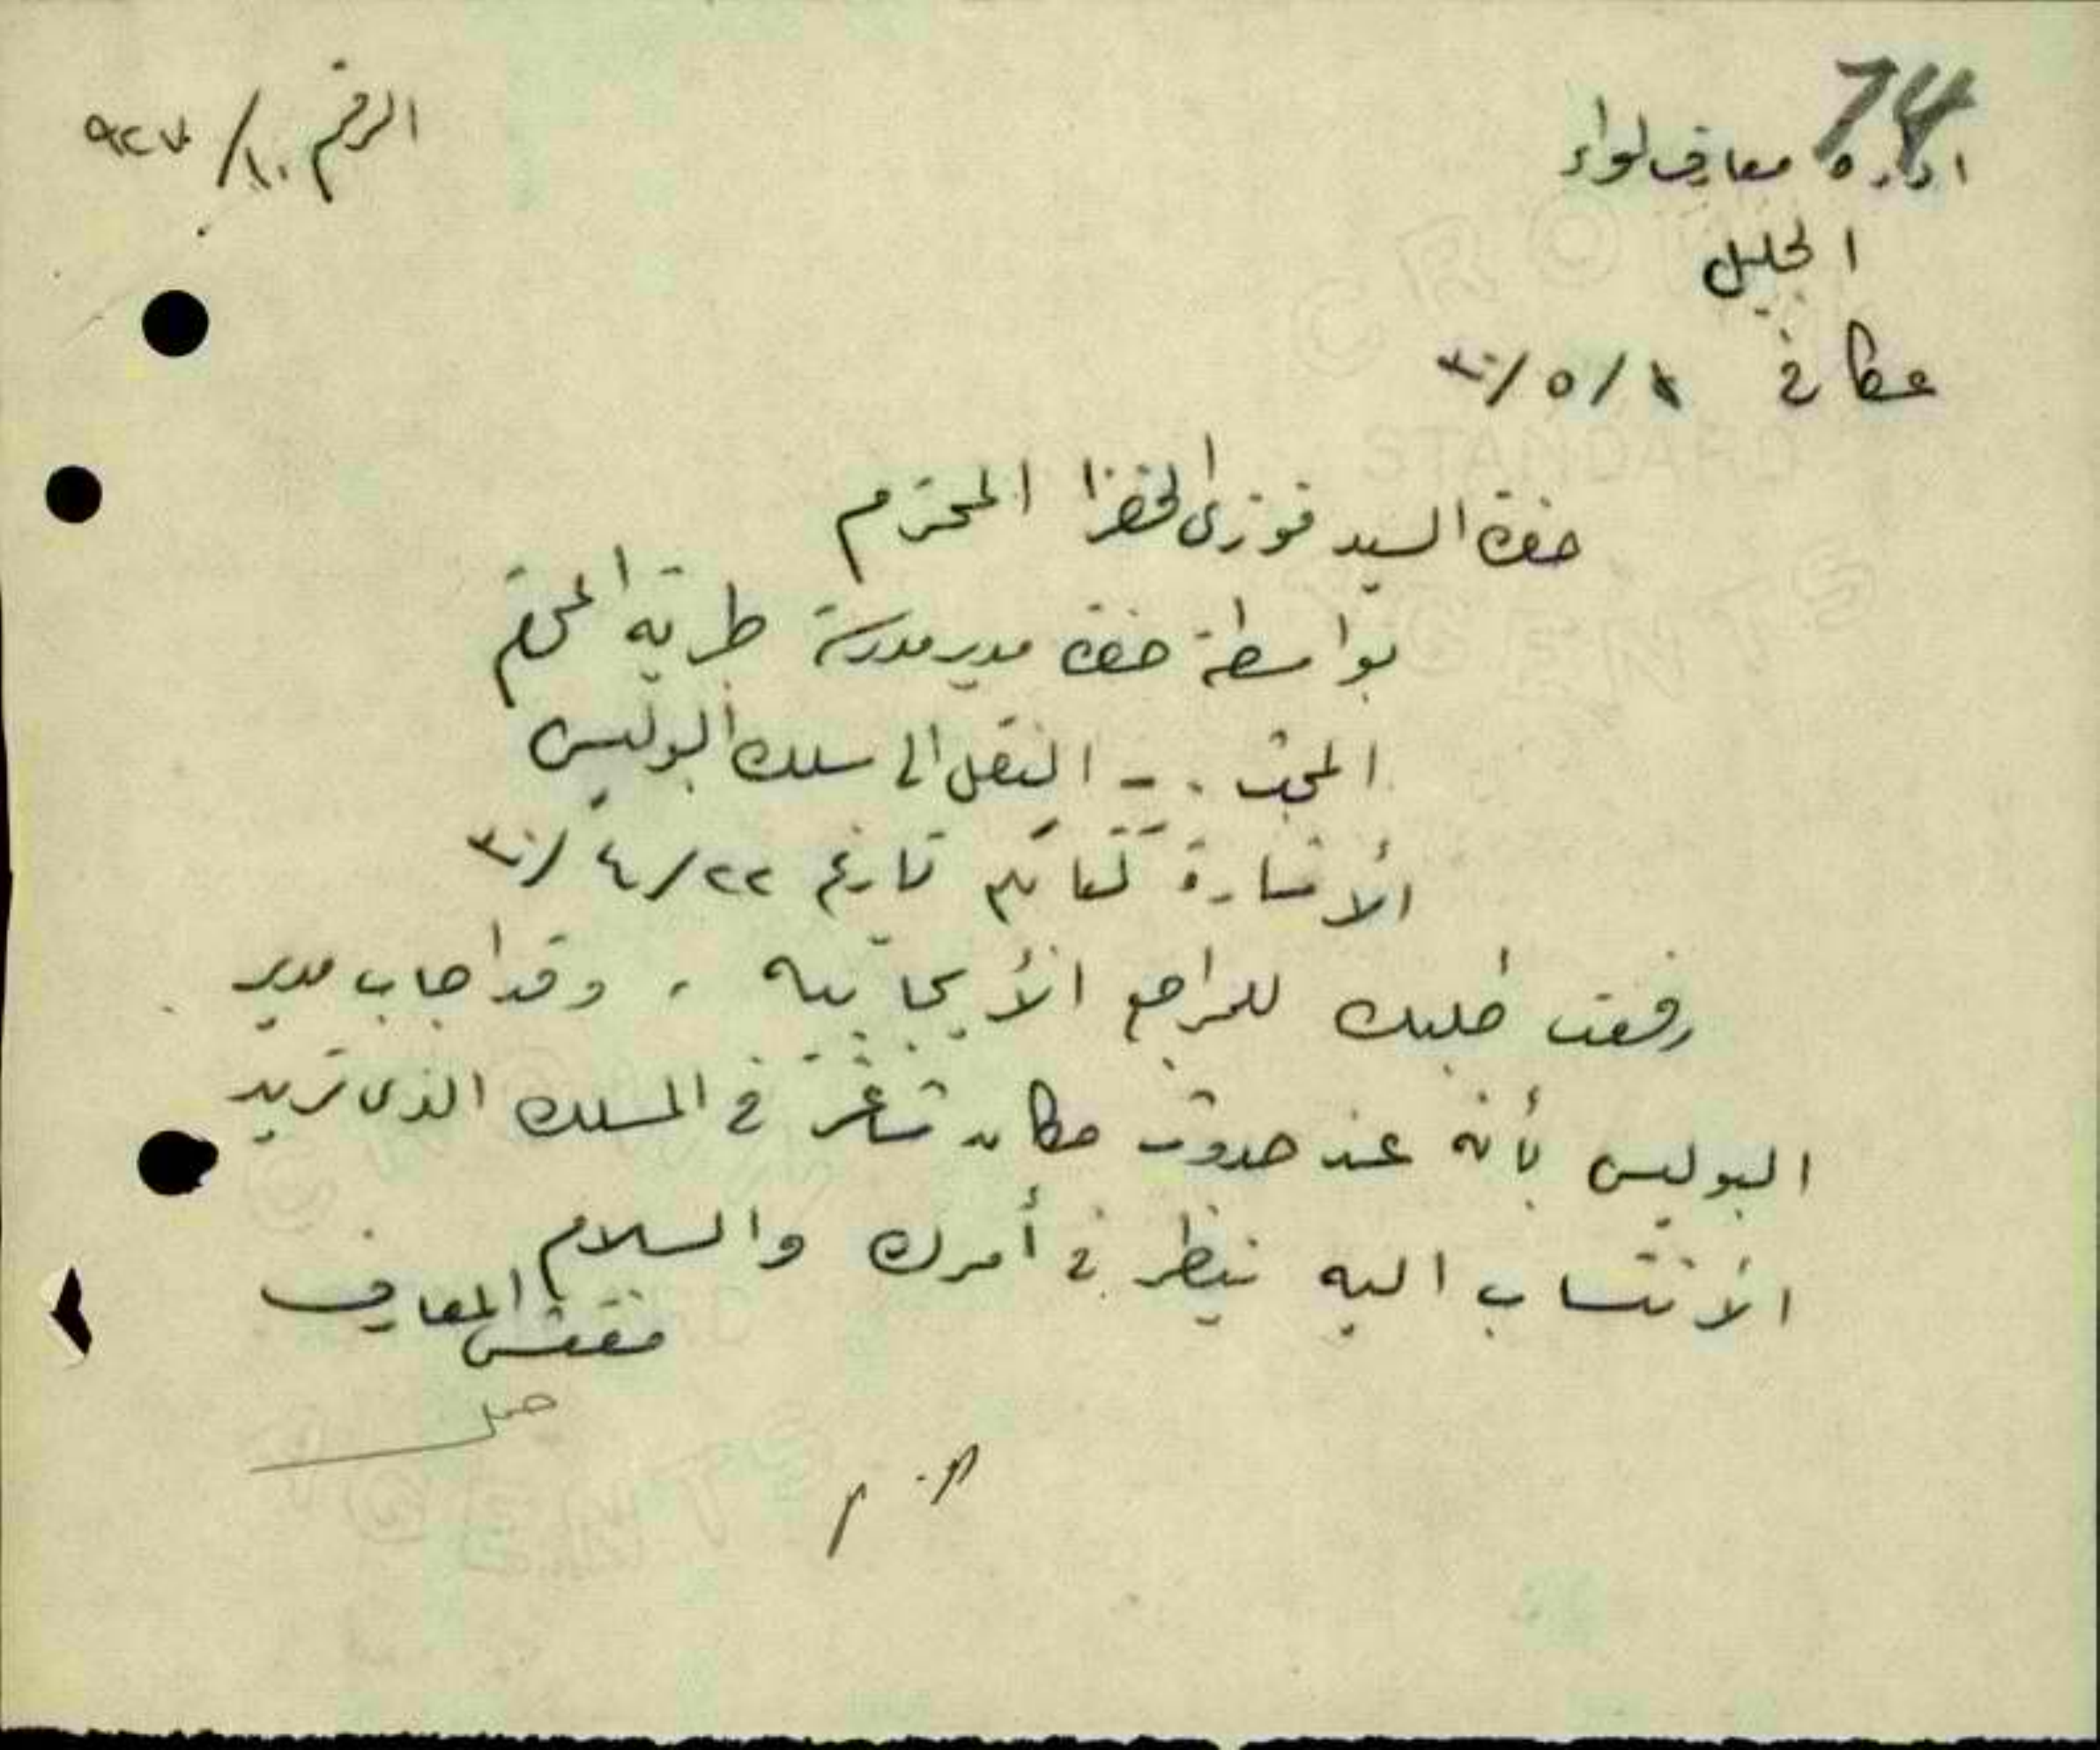 74
الرقم ١٠/ ٩٢٧
ادارة معارف لواء
الجليل
عكا في ١/ ٥/ ٣٠
حضرة السيد فوزي الخضرا المحترم
بواسطة حضرة مدير مدرسة طبريه المحترم
المبحث :- النقل الى سلك البوليس
الأشارة كتابكم تاريخ ٢٢/ ٤/ ٣٠
رفعت طلبك للمراجع الأيجابيه ، وقد اجاب مدير
البوليس بأنه عند حدوث مكان شاغر في المسلك الذي تريد
الأنتساب اليه ينظر في أمرك والسلام
مفتش المعارف
CROWN
STANDARD
AGENTS